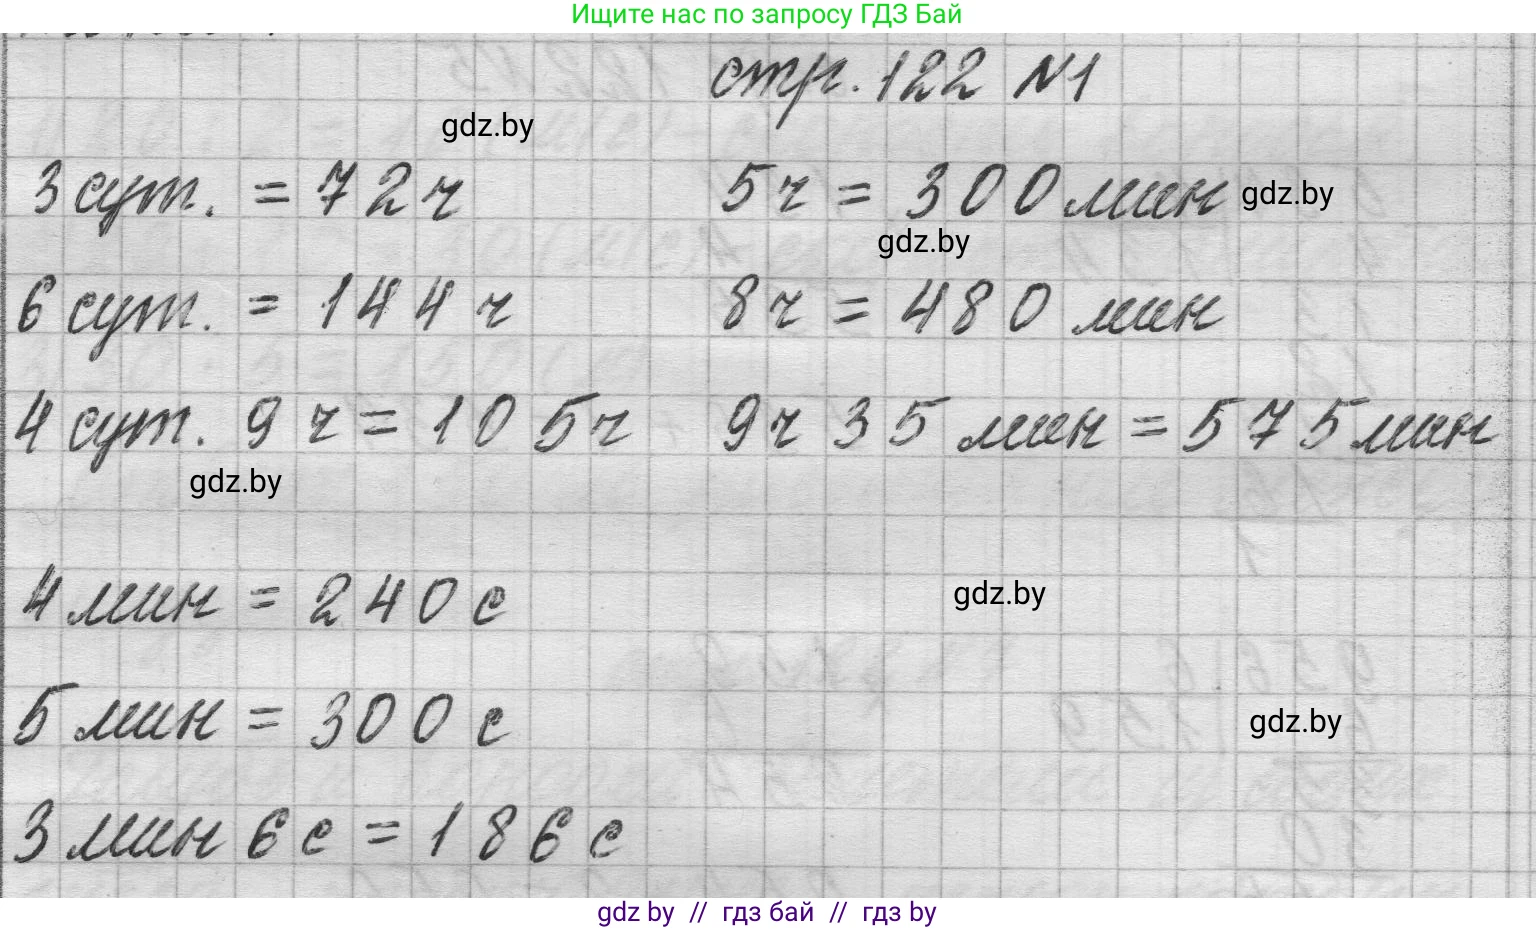 Ищите нас по запросу ГДЗ Бай
стр. 122 N1
gdz.by
3 сут. = 72 ч 5 ч = 300 мин gdz.by
gdz.by
6 сут. = 144 ч 8 ч = 480 мин
4 сут. 9 ч = 105 ч 9 ч 35 мин = 575 мин
gdz.by
4 мин = 240 с gdz.by
5 мин = 300 с gdz.by
3 мин 6 с = 186 с
gdz by // гдз бай // гдз by